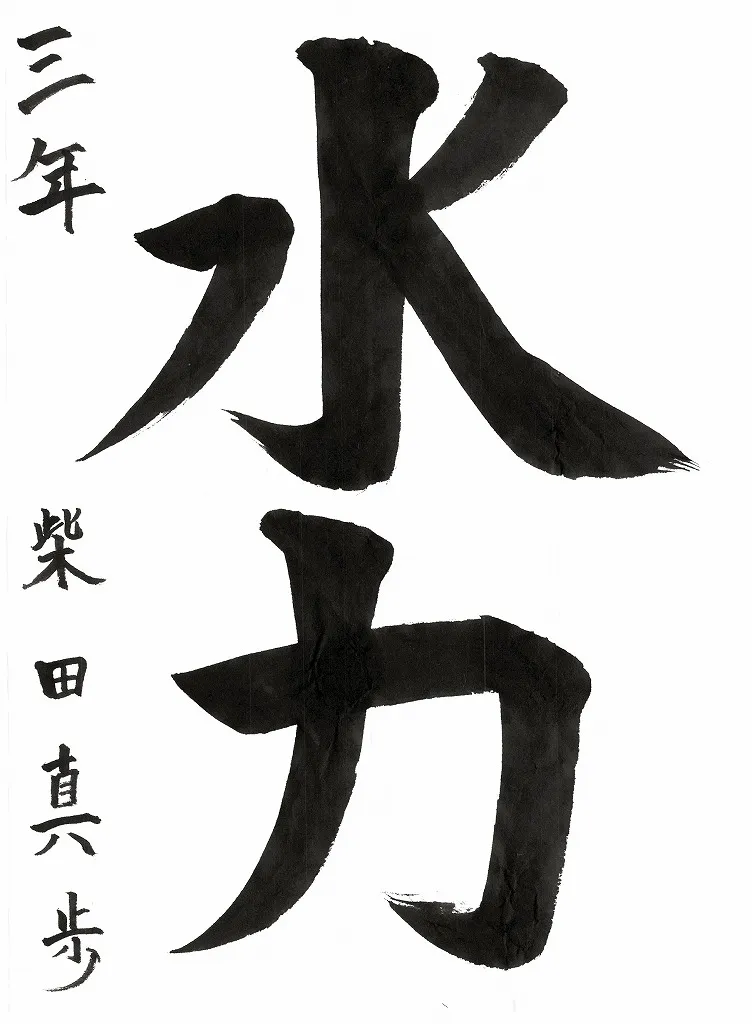 水力
三年 柴田真歩